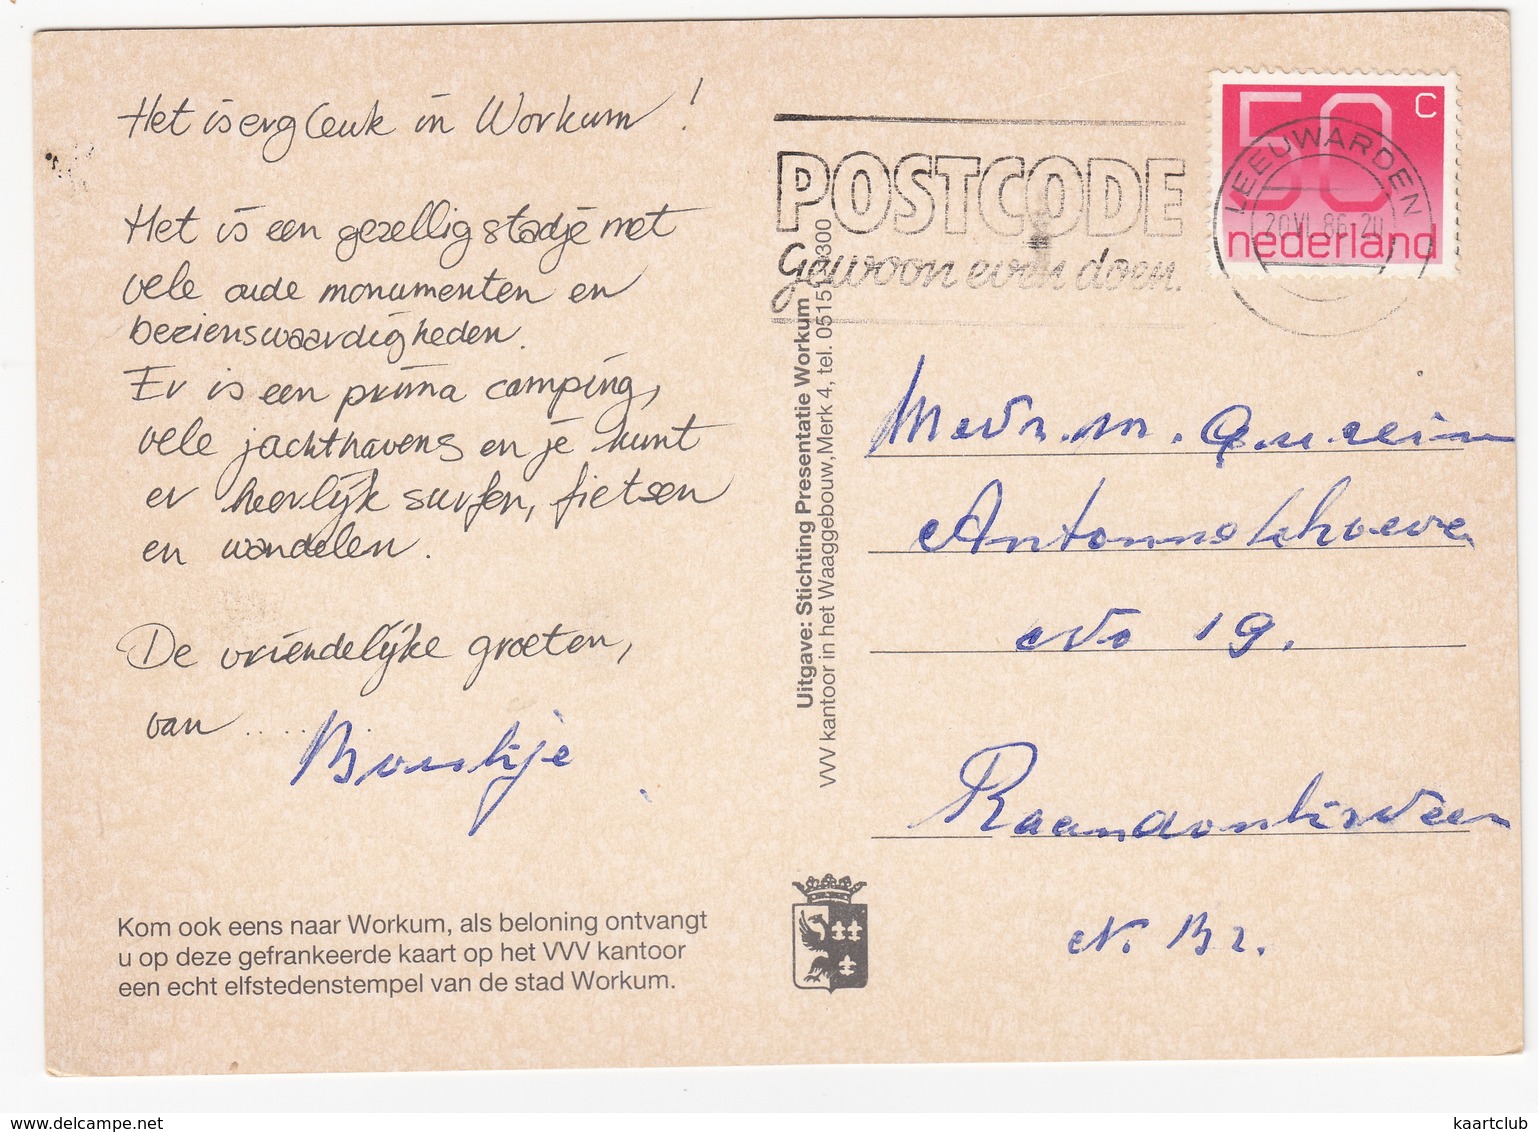 Het is erg leuk in Workum!
Het is een gezellig stadje met
vele oude monumenten en
bezienswaardigheden.
Er is een prima camping,
vele jachthavens en je kunt
er heerlijk surfen, fietsen
en wandelen.
De vriendelijke groeten,
van .....
Kom ook eens naar Workum, als beloning ontvangt
u op deze gefrankeerde kaart op het VVV kantoor
een echt elfstedenstempel van de stad Workum.
Uitgave: Stichting Presentatie Workum
VVV kantoor in het Waaggebouw, Merk 4, tel. 05151 - 1300
POSTCODE
Gewoon even doen.
50 c
nederland
LEEUWARDEN
20 VI 86 20
Mevr. m.
No 19.
N. Br.
www.delcampe.net
kaartclub